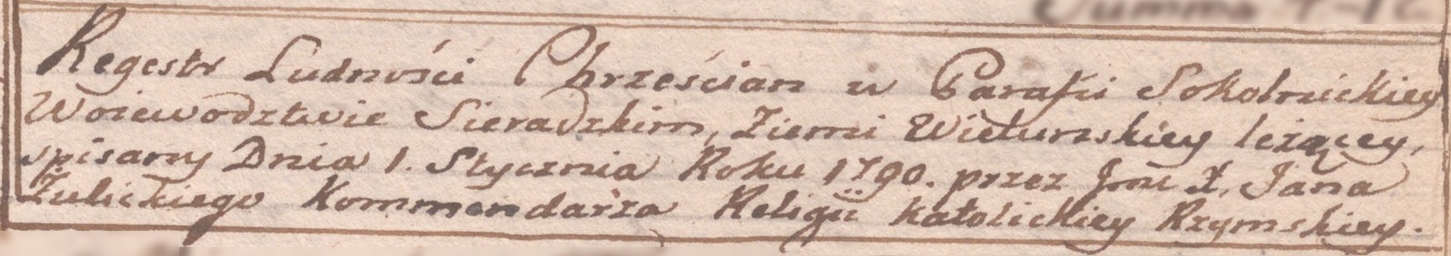 Regestr Ludności Chrześcian w Parafii Sokolnickiey
Woiewodztwie Sieradzkim, Ziemi Wieluńskiey leżącey,
spisany Dnia 1. Stycznia Roku 1790. przez Jmć X. Jana
Zulickiego Kommendarza Religii Katolickiey Rzymskiey.